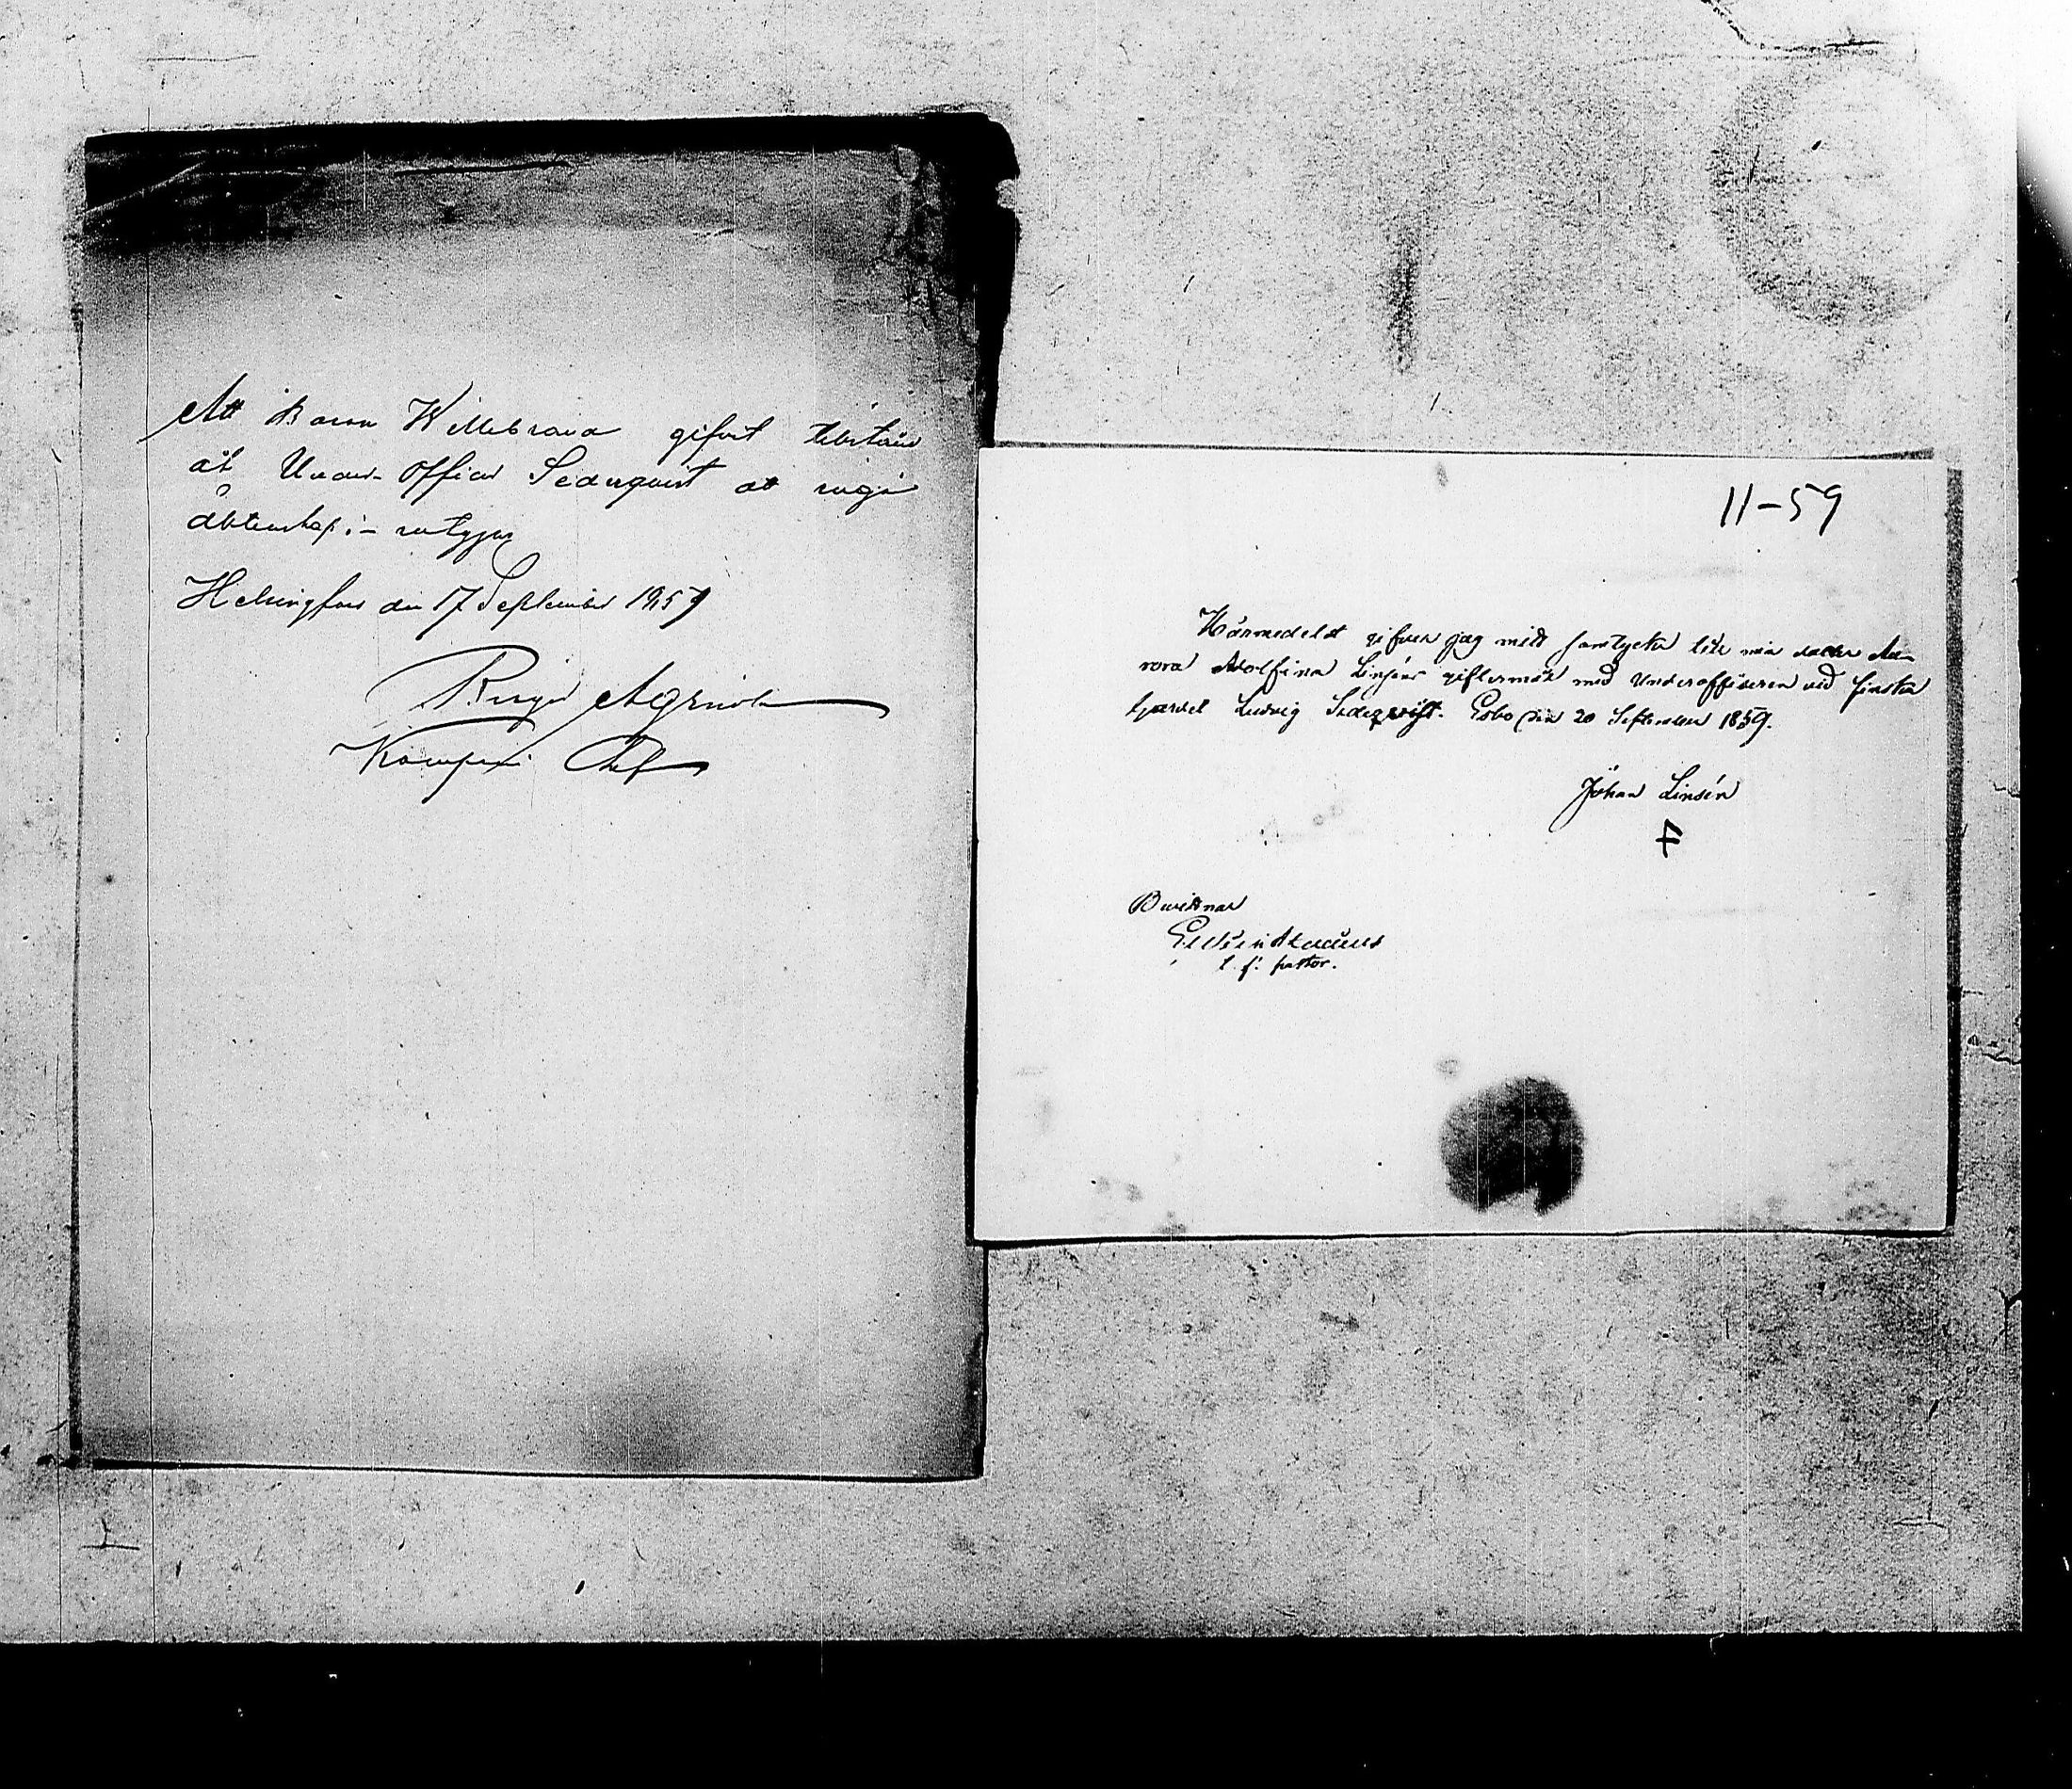 Att Baron Willebrand gifvit tillstånd
åt Under-Officer Sederqvist att ingå
äktenskap :- intygar
Helsingfors den 17 September 1859
Agricola
Kompani Chef
11-59
Härmedelst gifver jag mitt samtycke till min dotter Au-
rora Adolfina Linséns giftermål med Underofficeren vid finska
Gardet Ludvig Sederqvist. Esbo den 20 September 1859.
Johan Linsén
Bevittnar
t. f. pastor.